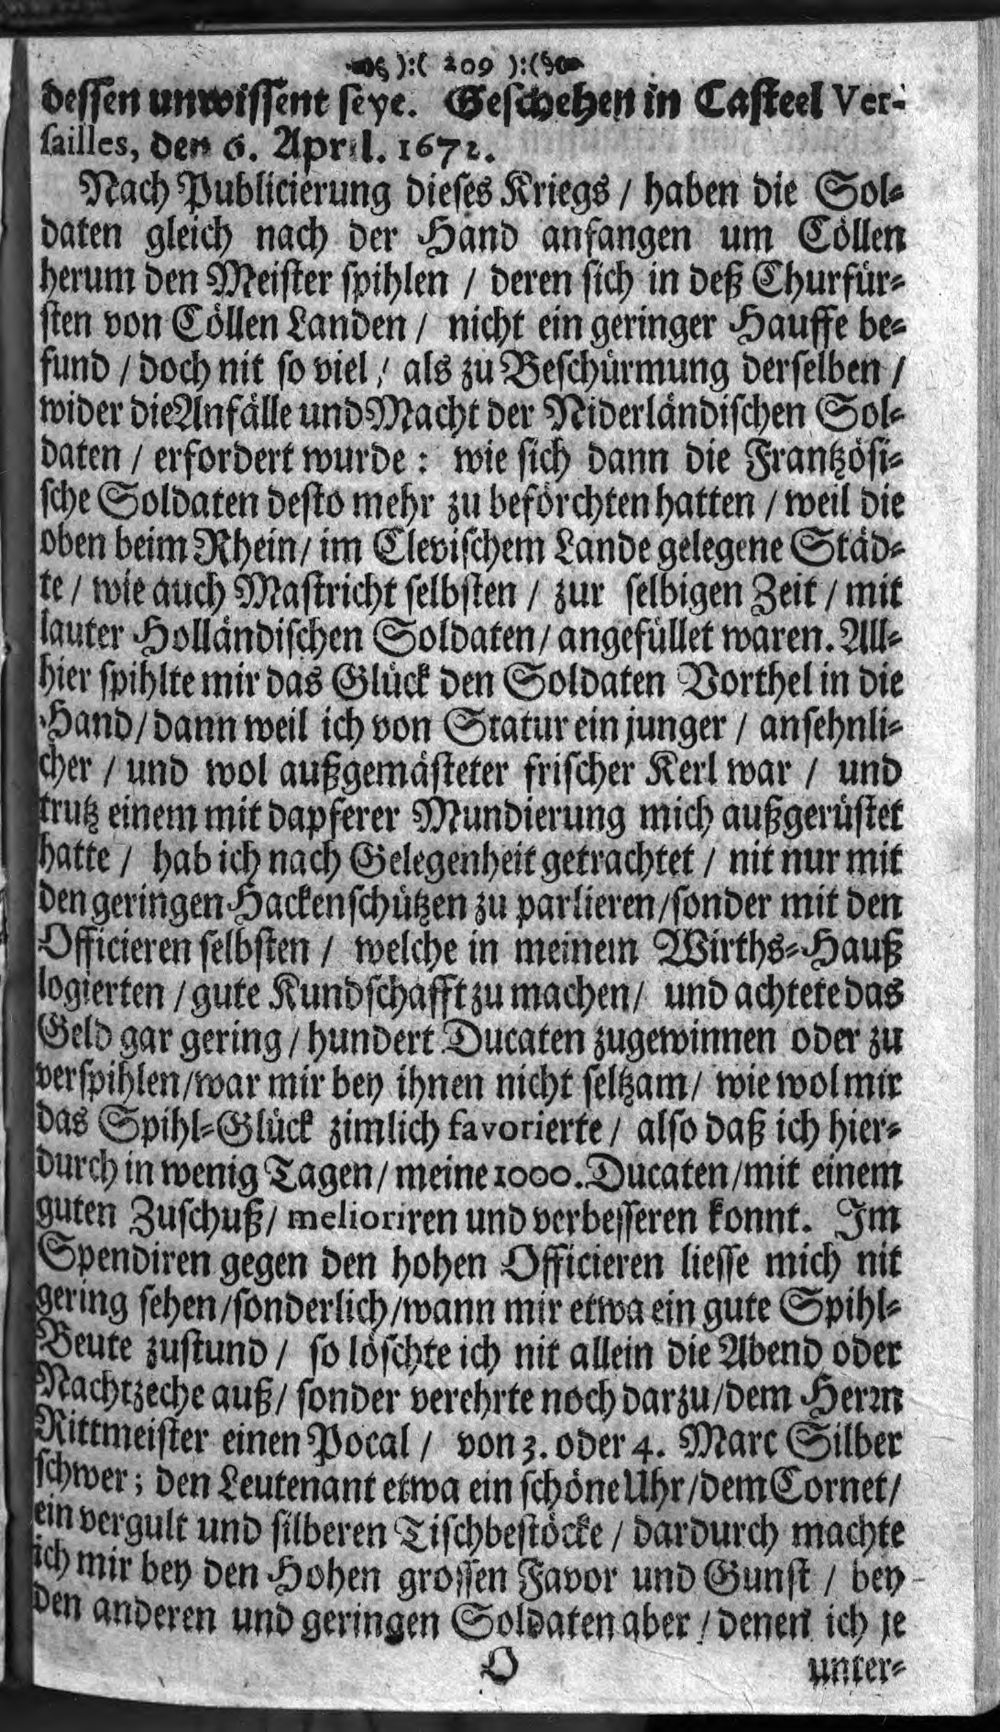 ):( 209 ):(
dessen unwissent seye. Geschehen in Casteel Ver-
sailles, den 6. April. 1672.
Nach Publicierung dieses Kriegs / haben die Sol-
daten gleich nach der Hand anfangen um Cöllen
herum den Meister spihlen / deren sich in deß Churfür-
sten von Cöllen Landen / nicht ein geringer Hauffe be-
fund / doch nit so viel / als zu Beschürmung derselben /
wider die Anfälle und Macht der Niderländischen Sol-
daten / erfordert wurde : wie sich dann die Frantzösi-
sche Soldaten desto mehr zu beförchten hatten / weil die
oben beim Rhein / im Clevischem Lande gelegene Städ-
te / wie auch Mastricht selbsten / zur selbigen Zeit / mit
lauter Holländischen Soldaten / angefüllet waren. All-
hier spihlte mir das Glück den Soldaten Vorthel in die
Hand / dann weil ich von Statur ein junger / ansehnli-
cher / und wol außgemästeter frischer Kerl war / und
trutz einem mit dapferer Mundierung mich außgerüstet
hatte / hab ich nach Gelegenheit getrachtet / nit nur mit
den geringen Hackenschützen zu parlieren / sonder mit den
Officieren selbsten / welche in meinem Wirths-Hauß
logierten / gute Kundschafft zu machen / und achtete das
Geld gar gering / hundert Ducaten zugewinnen oder zu
verspihlen / war mir bey ihnen nicht seltzam / wie wol mir
das Spihl-Glück zimlich favorierte / also daß ich hier-
durch in wenig Tagen / meine 1000. Ducaten / mit einem
guten Zuschuß / melioriren und verbesseren konnt. Im
Spendiren gegen den hohen Officieren liesse mich nit
gering sehen / sonderlich / wann mir etwa ein gute Spihl-
Beute zustund / so löschte ich nit allein die Abend oder
Nachtzeche auß / sonder verehrte noch darzu / dem Herrn
Rittmeister einen Pocal / von 3. oder 4. Marc Silber
schwer ; den Leutenant etwa ein schöne Uhr / dem Cornet /
ein vergult und silberen Tischbestöcke / dardurch machte
ich mir bey den Hohen grossen Favor und Gunst / bey
den anderen und geringen Soldaten aber / denen ich je
O unter-